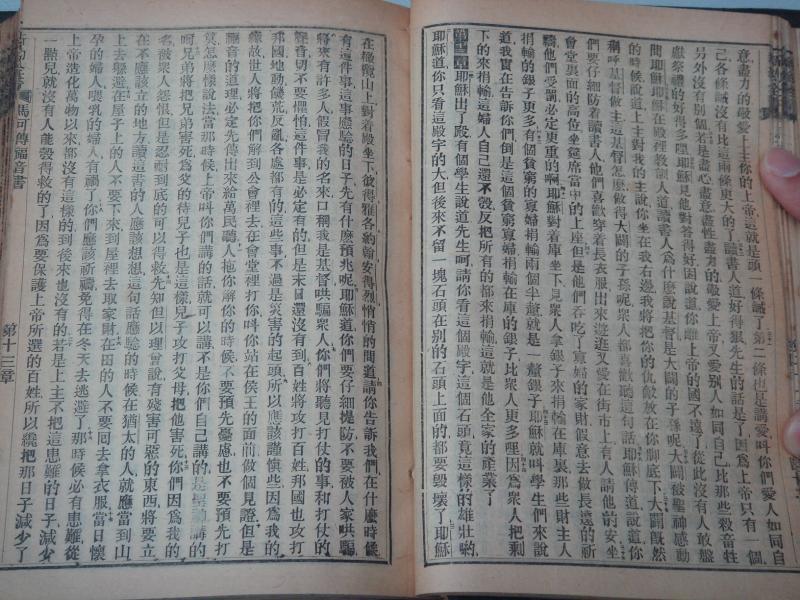 意盡力的敬愛上主你的上帝這就是頭一條誡了第二條也是講愛叫你們愛人如同自
己各條誡沒有比這兩條更大的了讀書人道好得狠先生的話是了因爲上帝只有一個
另外沒有別個若是盡心盡意盡性盡力的敬愛上帝又愛别人如同自己比那些殺牲
獻祭禮的好得多哩耶穌見他對答得好因說道你離上帝的國不遠了從此沒有人敢盤
問耶穌耶穌在殿裡教訓人道讀書人爲什麽說基督是大闢的子孫呢大闢被聖神感動
的時候說道上主對我的主說你坐在我右邊我將把你的仇敵放在你脚底下大闢旣然
稱呼基督做主這基督怎麽做得大闢的子孫呢衆人都喜歡聽這句話耶穌傳道說道你
們要仔細防着讀書人他們喜歡穿着長衣服出來遊逛又愛在街市上有人請他們安坐
會堂裏面的高位坐筵席當中的上座但是他們吞吃了寡婦的家財假意去做長遠的祈
禱他們受罰必定更重的啊耶穌對着庫坐下見衆人拿銀子來捐輸在庫裏那些財主人
捐輸的銀子更多有個貧窮的寡婦捐輸兩個半釐就是一釐銀子耶穌就叫學生們來說
道我實在告訴你們倒是這個貧窮寡婦捐輸在庫的銀子比衆人更多哩因爲衆人把剩
下的來捐輸這婦人自己還不彀反把所有的都來捐輸這就是他全家的產業了
第十三章耶穌出了殿有個學生說道先生呵請你看這個殿宇這個石頭竟這樣的雄壯喲
耶穌道你只看這殿宇的大但後來不留一塊石頭在别的石頭上面的都要毀壞了耶穌
在橄欖山上對着殿坐下彼得雅各約翰安得烈悄悄的問道請你告訴我們在什麽時候
有這件事這事應驗的日子先有什麽預兆呢耶穌道你們要仔細提防不要被人家哄騙
將來有許多人假冒我的名來口稱我是基督哄騙衆人你們將聽見打仗的事和打仗的
聲音切不要懼怕這件事是必定有的但是末日還沒有到百姓將攻打百姓那國也攻打
那國地動饑荒反亂各處都有的這些事不過是災害的起頭所以應該謹愼些因爲我的
緣故世人將把你們解到公會裡去在會堂裡打你叫你站在侯王的面前做個見證但是
福音的道理必定先傳出來給萬民聽人拖你解你的時候不要預先憂慮也不要預先打
算怎麽樣說法當那時候上帝叫你們講的話就可以講不是你們自己講的是聖神講的
呵兄弟將把兄弟害死爲父的待兒子也是這樣兒子攻打父母把他害死你們因爲我的
名被衆人怨恨但是忍耐到底的可以得救先知但以理會說有殘害可惡的東西將要立
在不應該立的地方讀這書的人應該想想這句話應驗的時候在猶太的人就應當到山
上去躲避在屋子上的人不要下來到屋裡去取家財在田的人不要囘去拿衣服當日懷
孕的婦人喂乳的婦人有禍了你們應該祈禱免得在冬天去逃避了那時候必有患難從
上帝造化萬物以來都沒有這樣的到後來也沒有的若是上主不把這患難的日子減少
一點兒就沒有人能彀得救的了因爲要保護上帝所選的百姓所以纔把那日子減少了
馬可傳福音書
第十三章